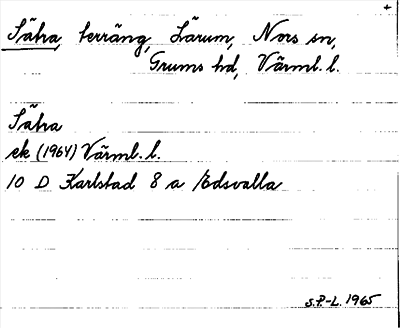 +
Sätra, terräng, Lärum, Nors sn,
Grums hd, Värml. l.
Sätra
ek (1964) Värml. l.
10 D Karlstad 8 a Edsvalla
S.P-L. 1965